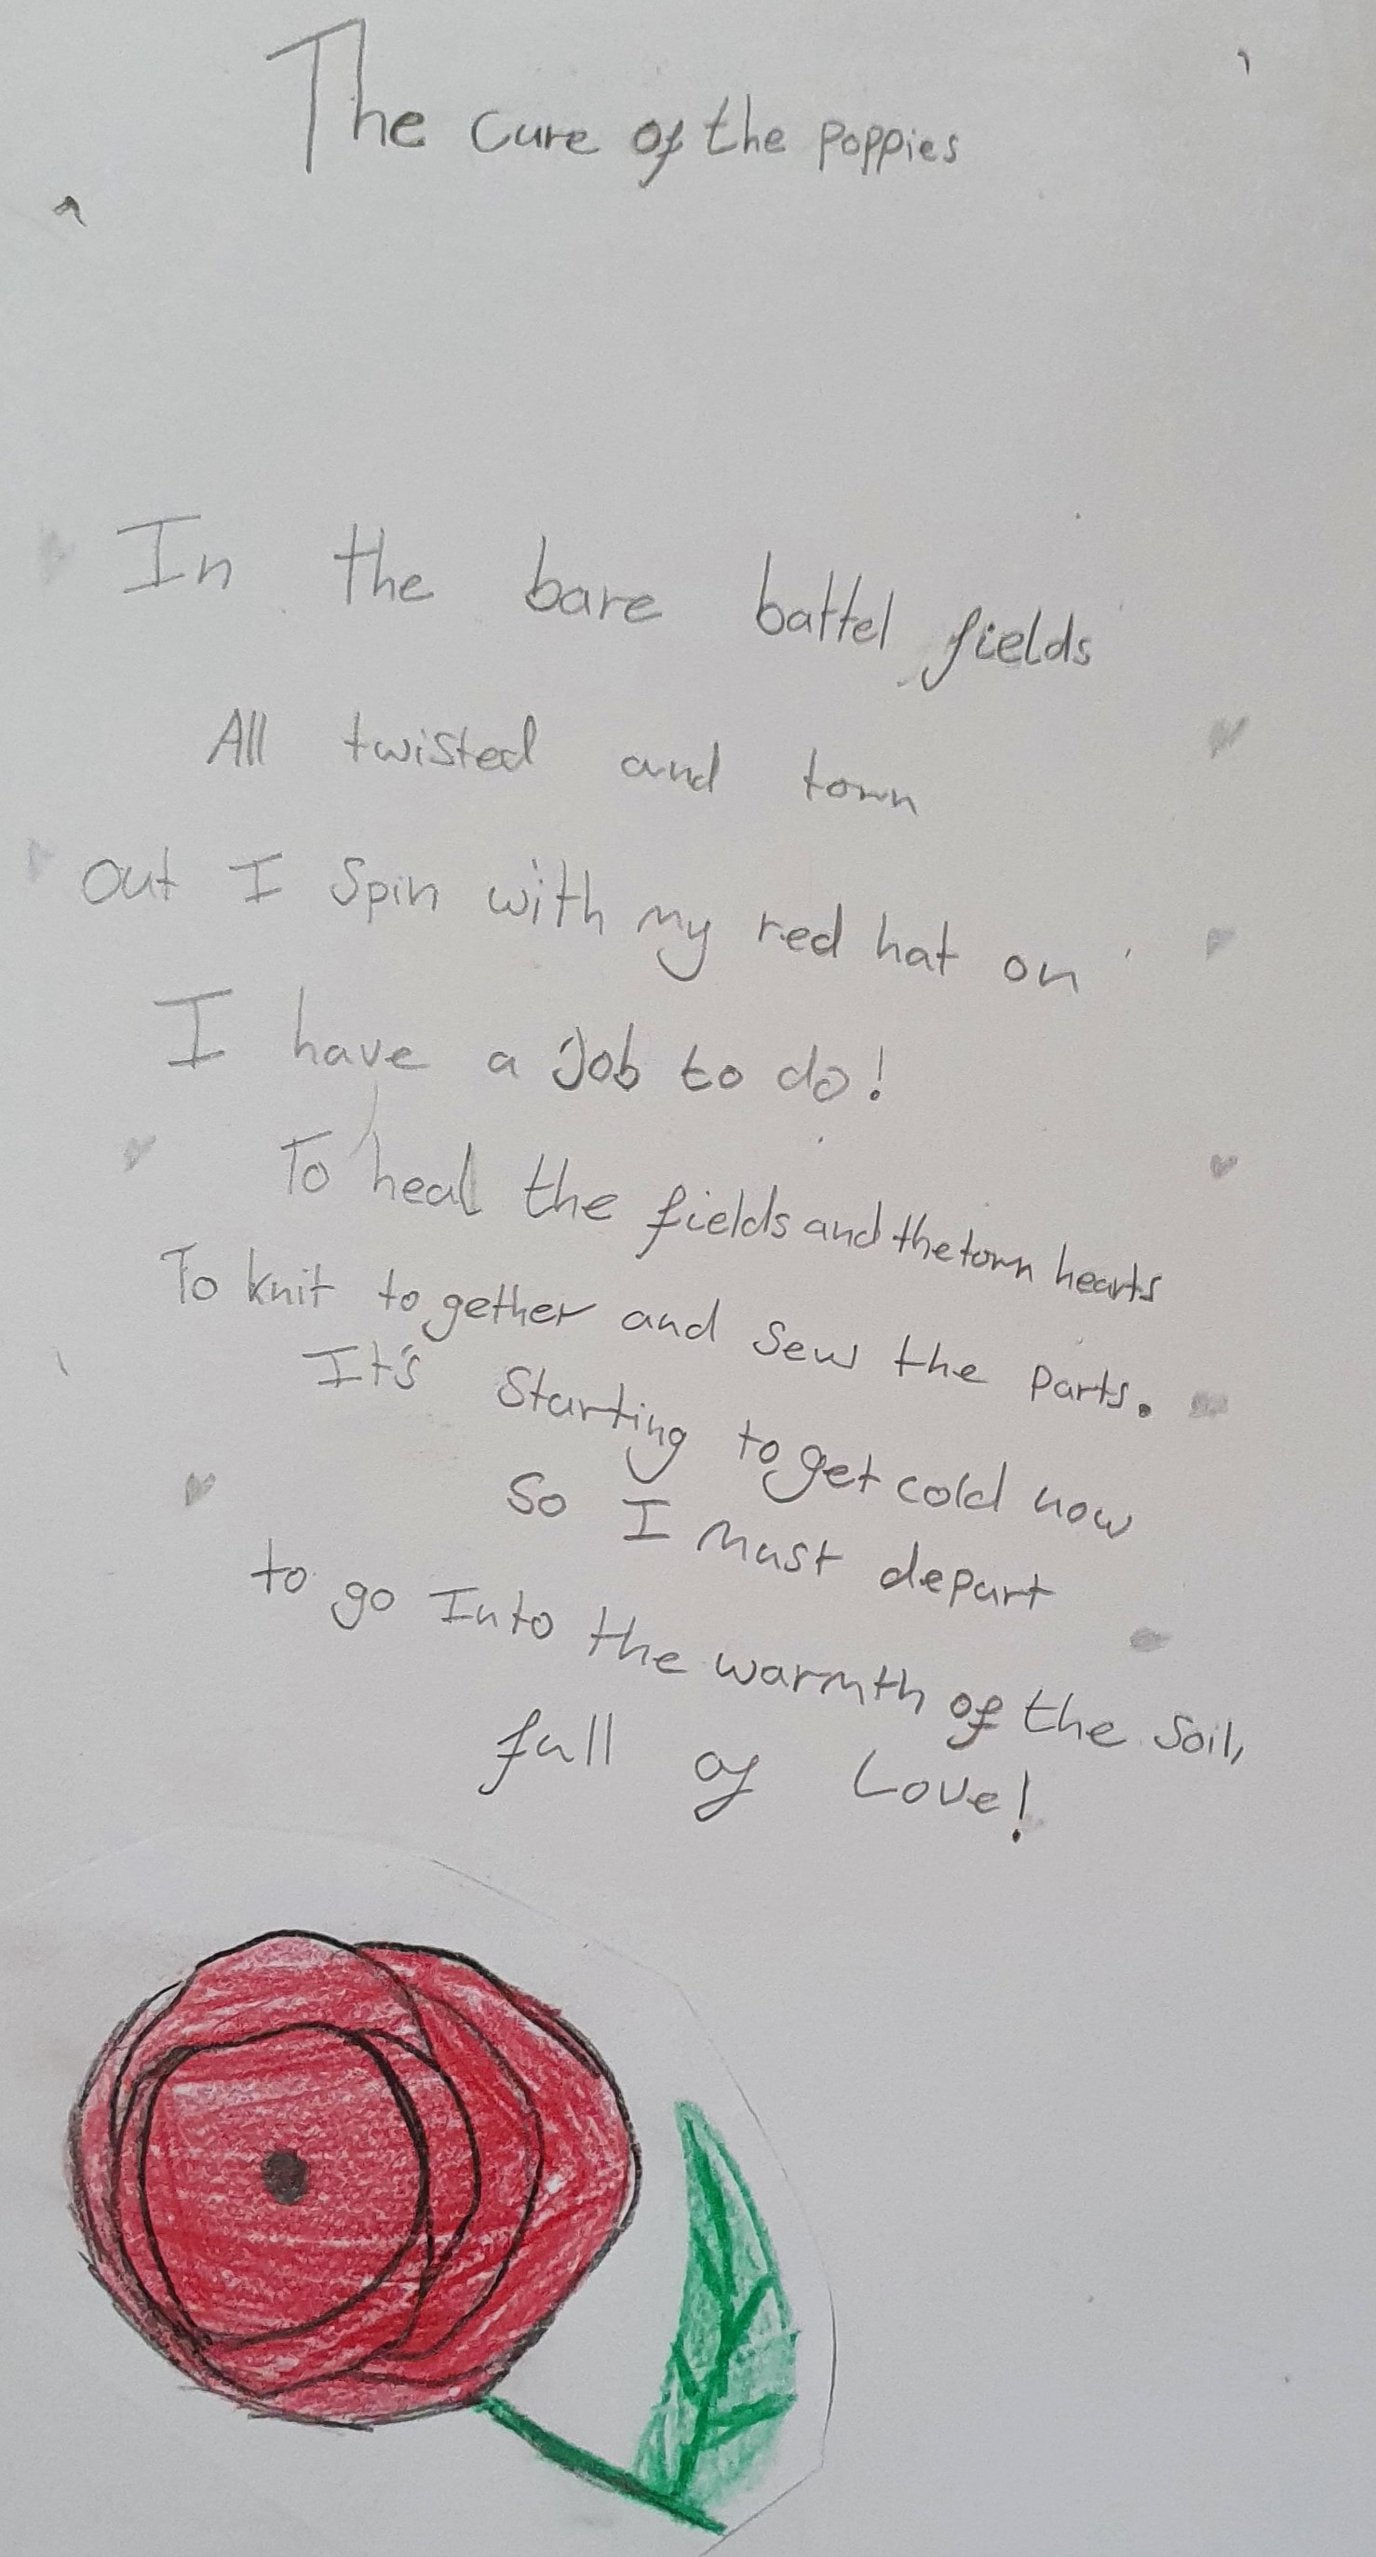 The cure of the poppies
In the bare battel fields
All twisted and torn
out I spin with my red hat on
I have a Job to do!
To heal the fields and the torn hearts
To knit to gether and sew the parts.
It's starting to get cold now
so I must depart
to go Into the warmth of the soil,
full of Love!